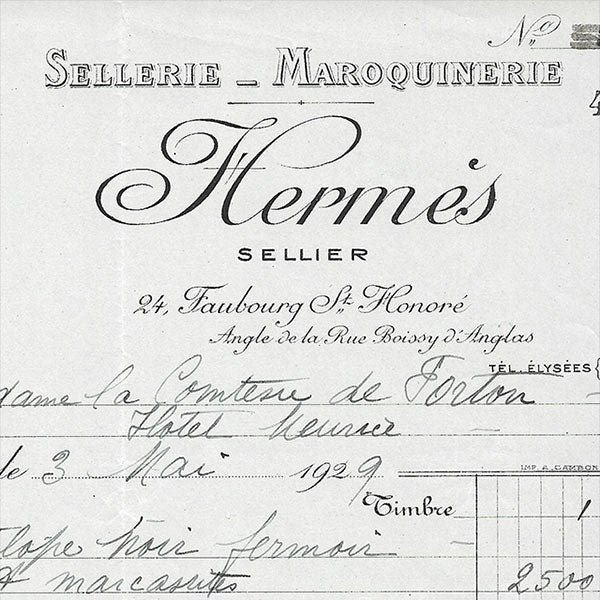 Nº
SELLERIE _ MAROQUINERIE
4
Hermès
SELLIER
24, Faubourg St. Honoré
Angle de la Rue Boissy d'Anglas
TÉL. ÉLYSÉES {
dame la Comtesse de Forton
Hotel Meurice
le 3 Mai 1929
IMP. A. CAMBON
Timbre 1
lope noir fermoir
marcassites 2500